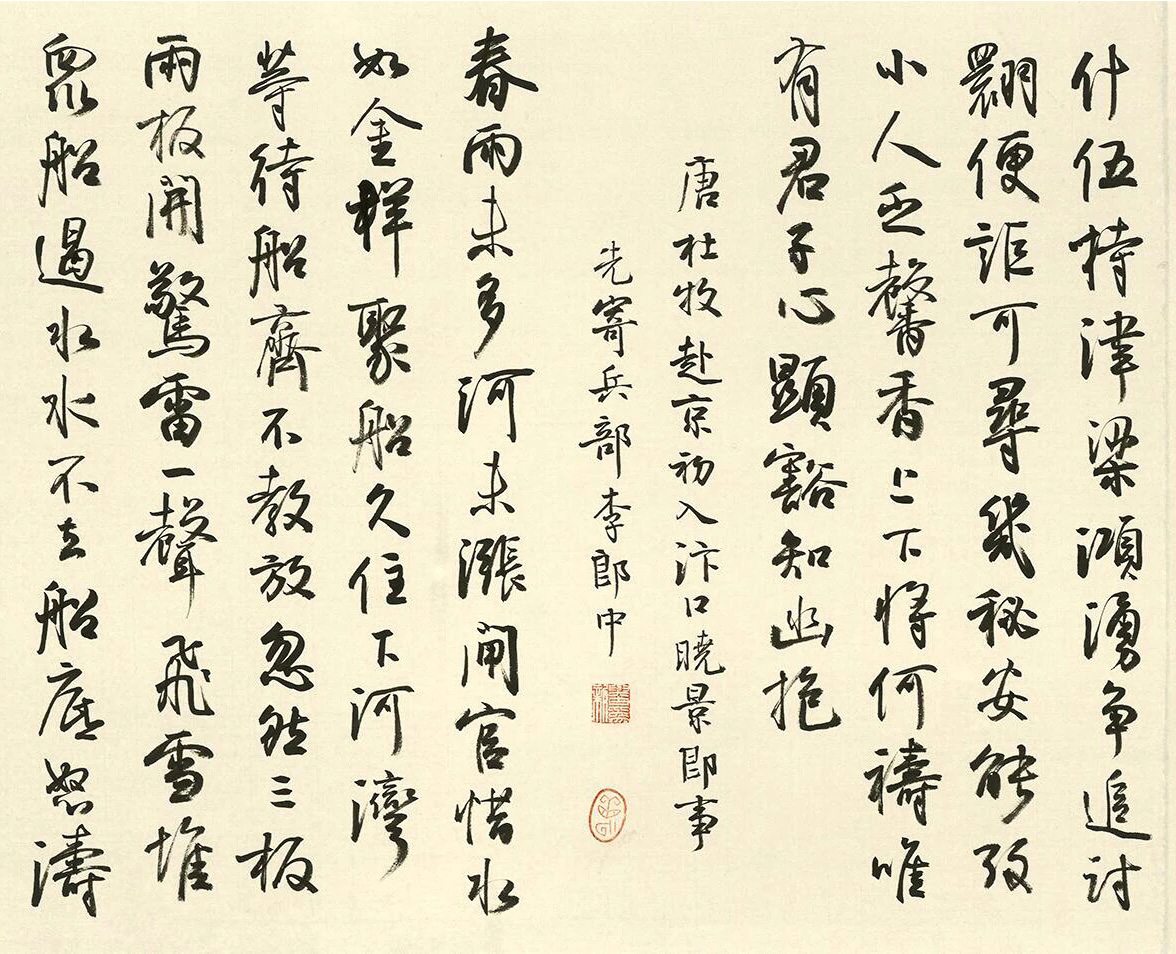 什伍持津梁澒湧争追討
翾便詎可尋幾秘安能攷
小人乏馨香上下将何禱唯
有君子心顯豁知幽抱
唐杜牧赴京初入汴口曉景即事
先寄兵部李郎中
春雨未多河未漲閘官惜水
如金样聚船久住下河灣
等待船齊不教放忽然三板
兩板開驚雷一聲飛雪堆
眾船遏水水不去船底怒濤